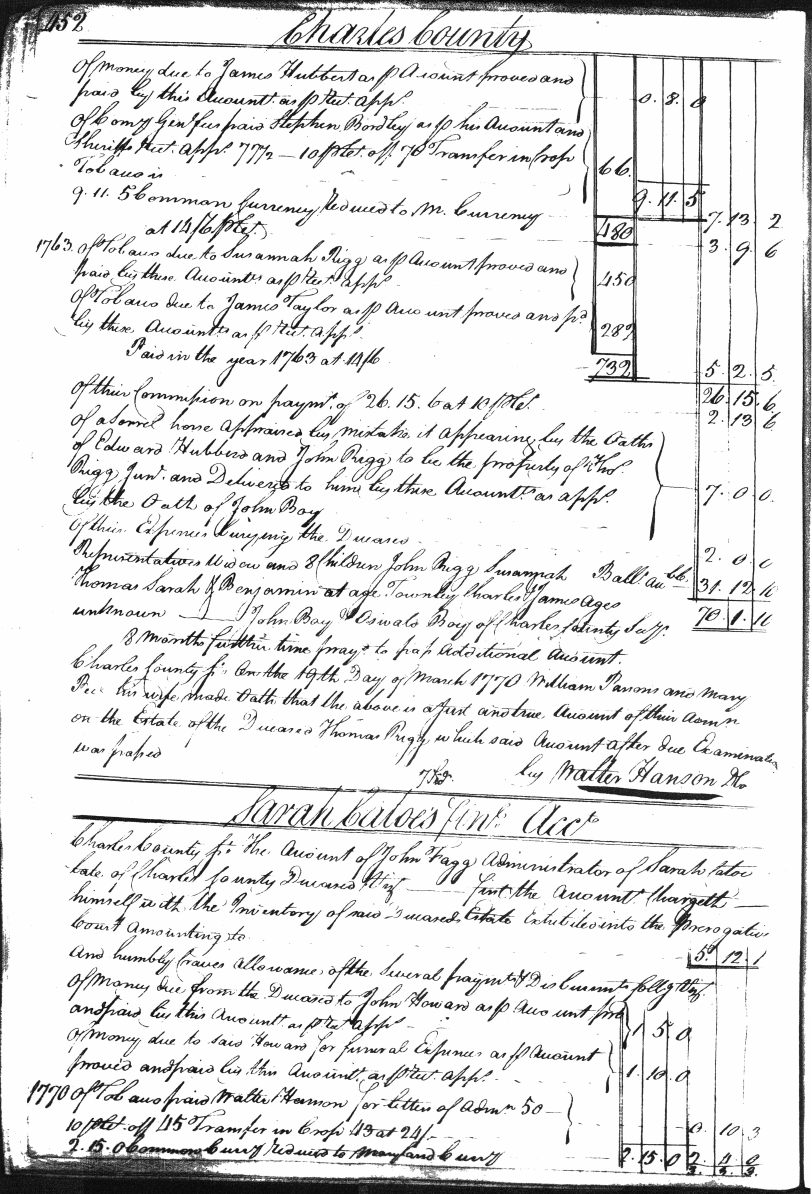 452
Charles County
of money due to James Hubbert as p Account proved and
paid by this Accountt. as p Rect. appS. 0. 8. 0
of Comy Genl fees paid Stephen Bordley as p his Account and
Sheriffs Rect. appS. 77½ — 10 pCet. off. 70 Transfer in Crop
Tobacco is 66.
9. 11. 5
9. 11. 5 Common Currency Reduced to M. Currency
at 14/6 pCet 480 7. 13. 2
3. 9. 6
1763. of Tobacco due to Susannah Rigg as p Account proved and
paid by these Accountts as p Rect. appS. 450
of Tobacco due to James Taylor as p Account proved and pd.
by these Accountts as p Rect. appS. 282
Paid in the year 1763 at 14/6 732 5. 2. 5
26. 15. 6
of their Commission on paymt. of 26. 15. 6 at 10 pCet. 2. 13. 6
of a Sorrel horse appraised by mistake it appearing by the Oaths
of Edward Hubbird and John Rigg to be the property of Thos.
Rigg Junr. and Delivered to him by these Accountts as appS. 7. 0. 0.
by the Oath of John Boy
of their Expences burying the Deceased 2. 0. 0
Representatives Widow and 8 Children John Rigg Susannah Ballc. 31. 12. 10
Thomas Sarah & Benjamin at age Townley Charles & James ages
unknown — John Boy & Oswald Boy of Charles County Surs. 70. 1. 10
8 Months further time prayd to pass Additional Account.
Charles County Ss. On the 19th Day of March 1770 William Parsons and Mary
his wife made Oath that the above is a Just and true Account of their Admn
on the Estate of the Deceased Thomas Rigg which said Account after due Examination
was passed
by Walter Hanson
Sarah Catoe's finl. Acct.
Charles County Ss. The Account of John Fagg Administrator of Sarah Catoe
late of Charles County Deceased Viz — first the Accountt. Chargeth —
himself with the Inventory of said Deceaseds Estate Exhibited into the Prerogative
Court amounting to 5. 12. 1
And humbly Craves allowance of the Several paymts. & Disburmts. follg Viz.
of Money due from the Deceased to John Howard as p Account pro
and paid by this Accountt. as p Rect. appS. 1 5 0
of Money due to said Howard for funeral Expences as p Account
proved and paid by this Accountt. as p Rect. appS. 1. 10. 0
1770 of Tobacco paid Walter Hanson for letters of Admn 50 —
10 pCet. off 45 Transfer in Crop 43 at 24/- 0. 10 3
2. 15. 0 Common Curry Reduced to Maryland Curry 2. 15. 0 2. 4. 0